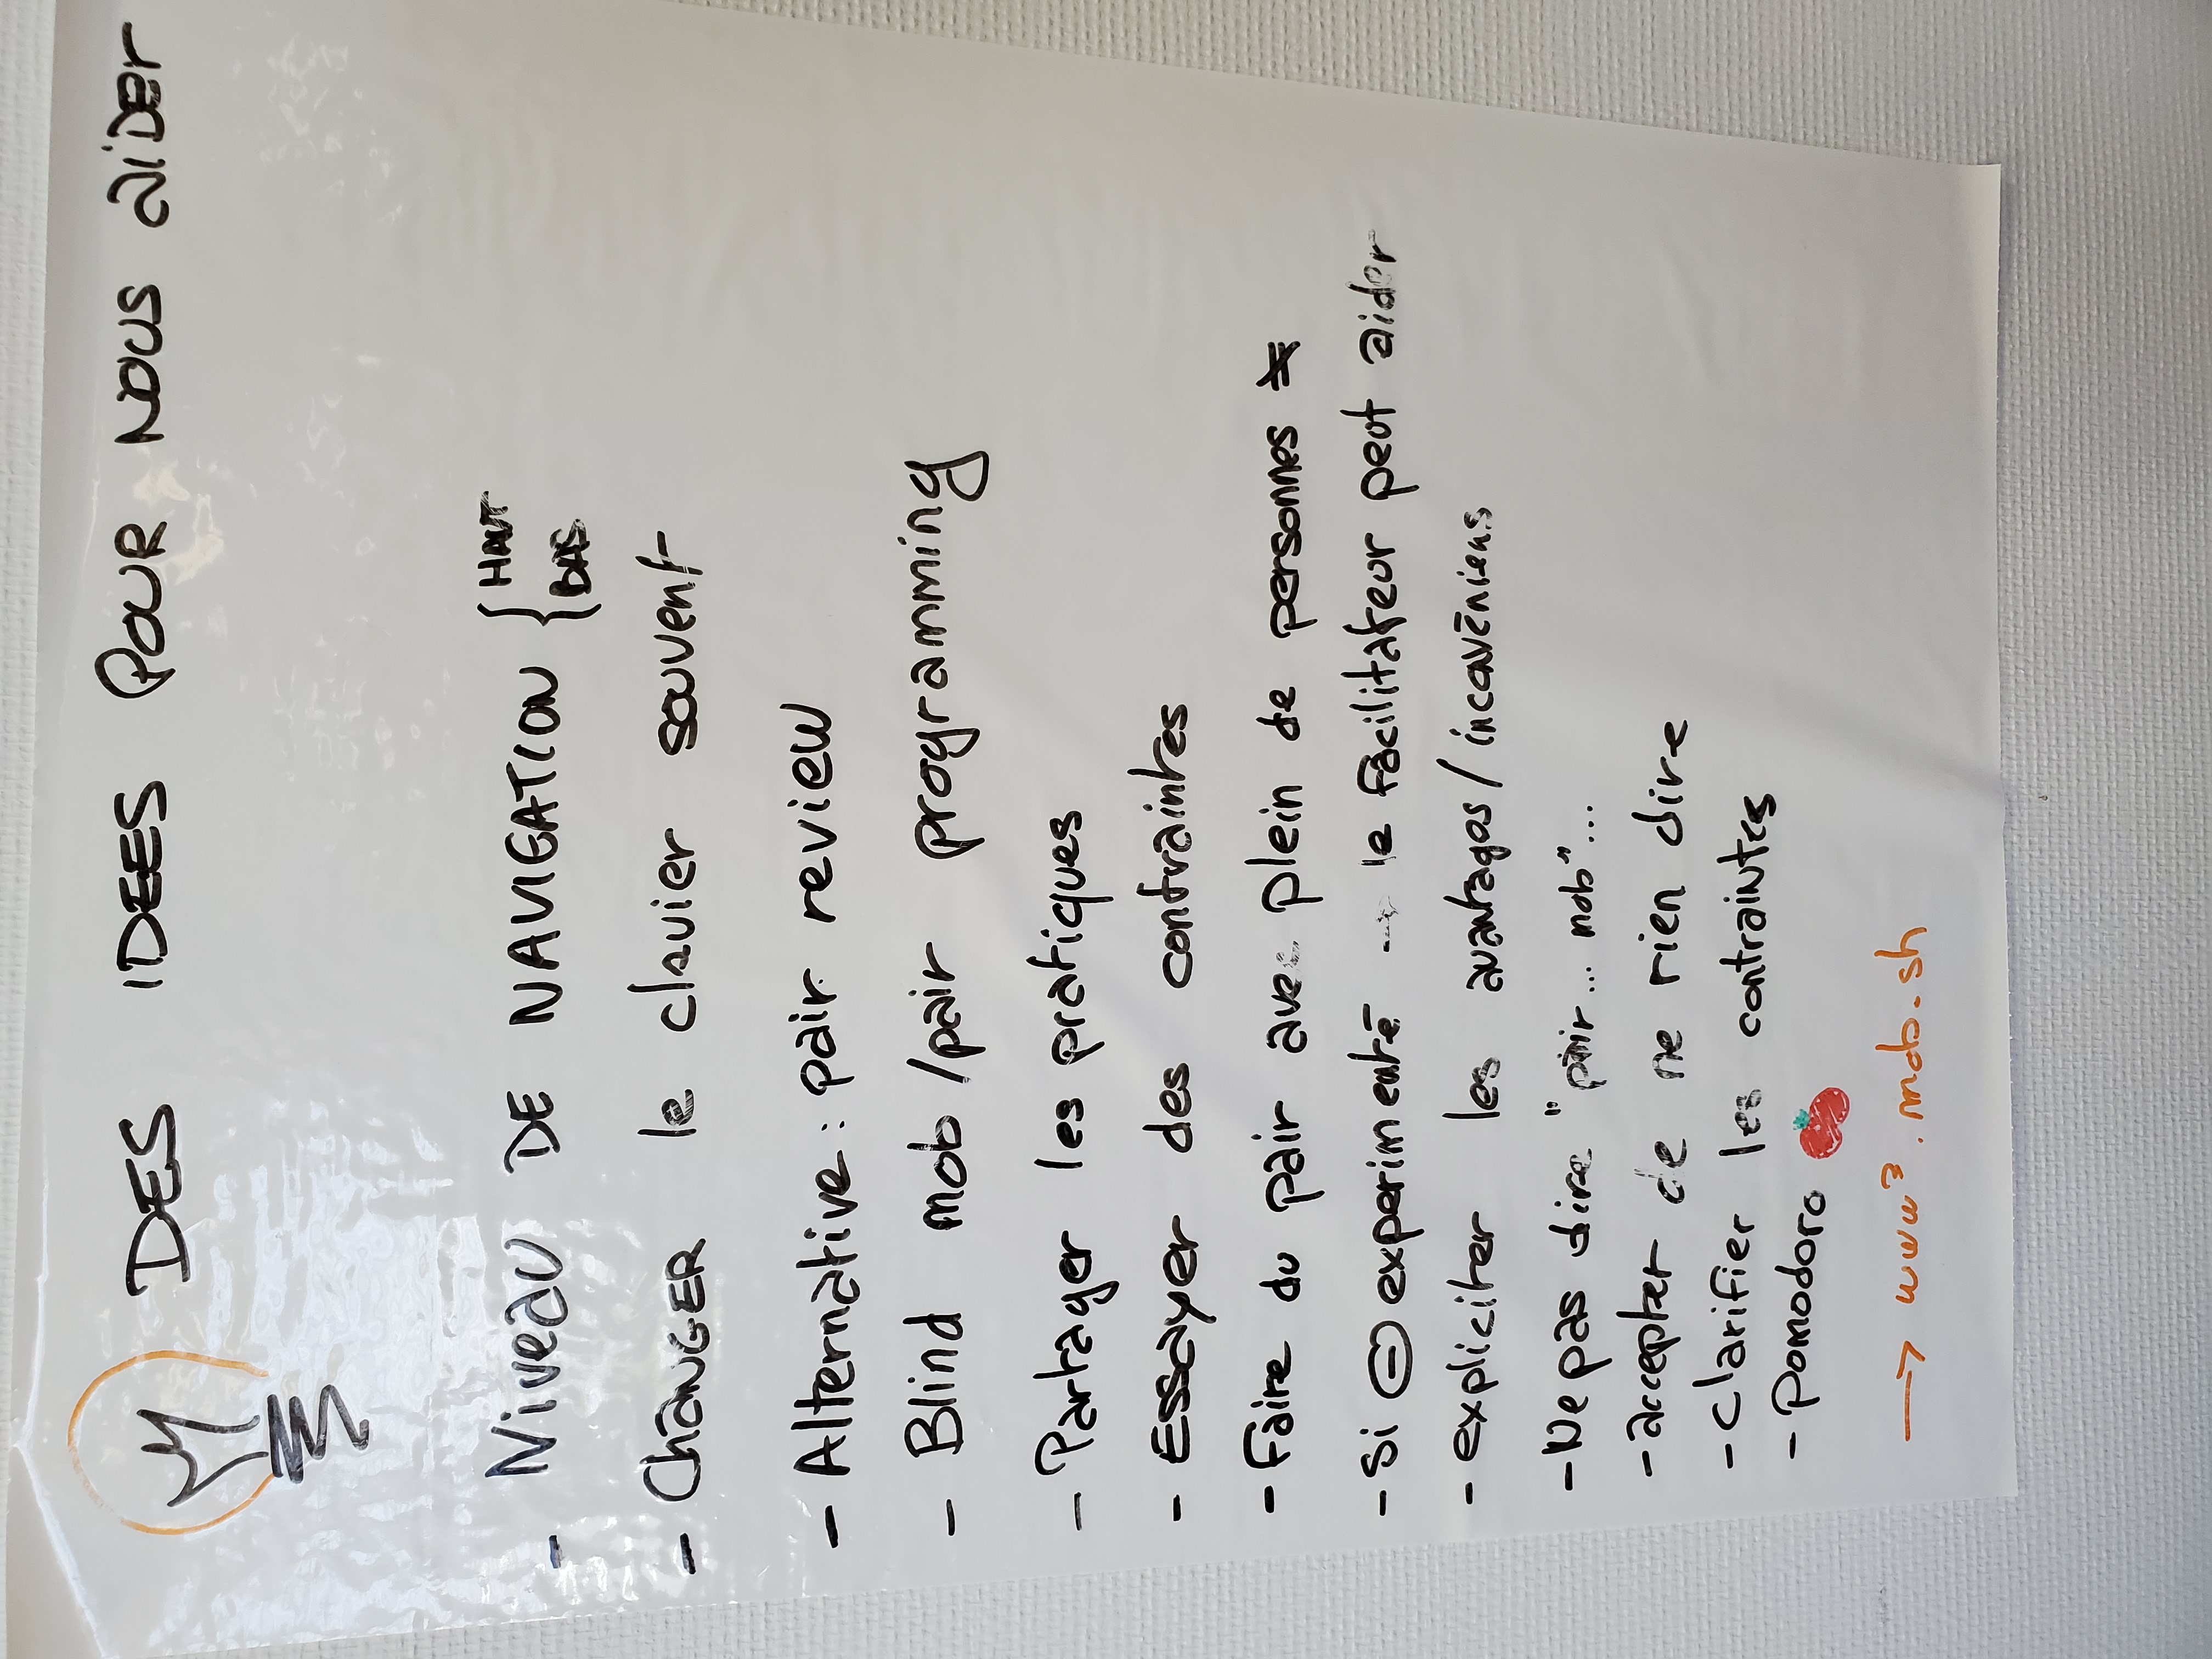 DES IDEES POUR NOUS aiDEr
- NiveaU DE NAVIGATION { HAUT
BAS
- ChaNGER le clavier souvent
- Alternative : pair review
- Blind mob /pair programming
- Partager les pratiques
- Essayer des contraintes
- Faire du pair avec plein de personnes ≠
- Si ⊖ experimenté → le facilitateur peut aider
- expliciter les avantages / inconvéniens
- Ne pas dire "pair... mob"...
- accepter de ne rien dire
- Clarifier les contraintes
- Pomodoro
→ www³.mob.sh